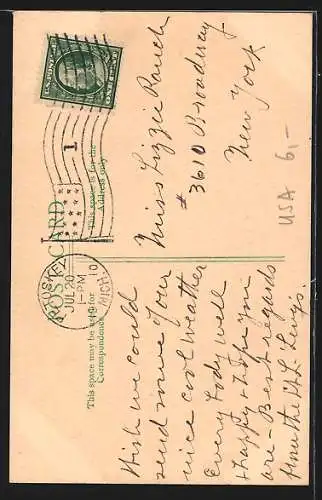 POST CARD
This space may be used for
Correspondence
This space is for the
Address only
U.S. POSTAGE
ONE CENT
PETOSKEY
MICH.
JUL 20
1-PM
1910
1
Wish we could
send some of our
nice cool weather
Every body well
& happy & hope you
are - Best regards
from the
Miss Lizzie Rauch
# 3610 Broadway
New York
USA 6,-